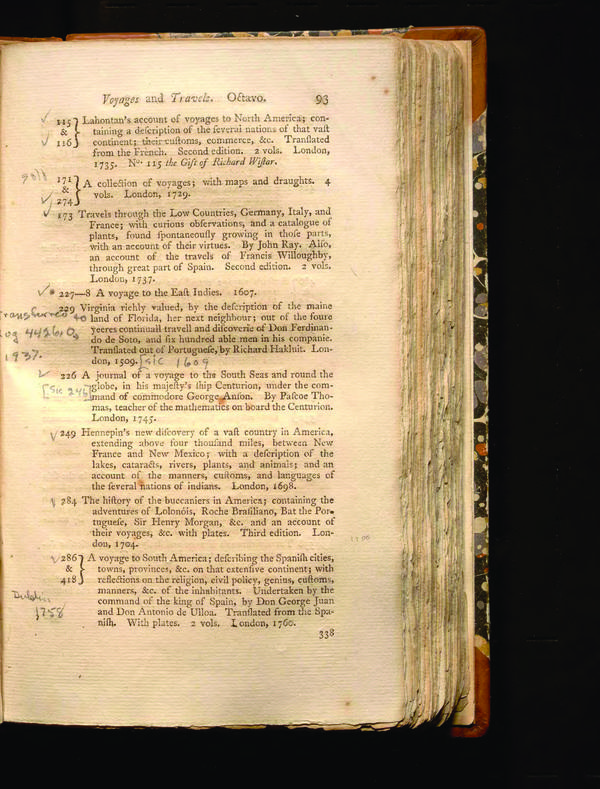 Voyages and Travels. Octavo. 93
115 & 116 } Lahontan's account of voyages to North America; con-
taining a deſcription of the ſeveral nations of that vaſt
continent; their cuſtoms, commerce, &c. Tranſlated
from the French. Second edition. 2 vols. London,
1735. No. 115 the Gift of Richard Wiſtar.
171 & 274 } A collection of voyages; with maps and draughts. 4
vols. London, 1729.
173 Travels through the Low Countries, Germany, Italy, and
France; with curious obſervations, and a catalogue of
plants, found ſpontaneouſly growing in thoſe parts,
with an account of their virtues. By John Ray. Alſo,
an account of the travels of Francis Willoughby,
through great part of Spain. Second edition. 2 vols.
London, 1737.
* 227—8 A voyage to the Eaſt Indies. 1607.
229 Virginia richly valued, by the deſcription of the maine
land of Florida, her next neighbour; out of the foure
yeeres continuall travell and diſcoverie of Don Ferdinan-
do de Soto, and ſix hundred able men in his companie.
Tranſlated out of Portugueſe, by Richard Hakluit. Lon-
don, 1509. [sic 1609
Transferred to
Log 4426.O
1937.
226 A journal of a voyage to the South Seas and round the
[sic 246] globe, in his majeſty's ſhip Centurion, under the com-
mand of commodore George Anſon. By Paſcoe Tho-
mas, teacher of the mathematics on board the Centurion.
London, 1745.
249 Hennepin's new diſcovery of a vaſt country in America,
extending above four thouſand miles, between New
France and New Mexico; with a deſcription of the
lakes, cataracts, rivers, plants, and animals; and an
account of the manners, cuſtoms, and languages of
the ſeveral nations of indians. London, 1698.
284 The hiſtory of the buccaniers in America; containing the
adventures of Lolonóis, Roche Braſiliano, Bat the Por-
tugueſe, Sir Henry Morgan, &c. and an account of
their voyages, &c. with plates. Third edition. Lon-
don, 1704.
286 & 418 } A voyage to South America; deſcribing the Spaniſh cities,
towns, provinces, &c. on that extenſive continent; with
reflections on the religion, civil policy, genius, cuſtoms,
manners, &c. of the inhabitants. Undertaken by the
command of the king of Spain, by Don George Juan
and Don Antonio de Ulloa. Tranſlated from the Spa-
niſh. With plates. 2 vols. London, 1760.
Dublin
1758
338